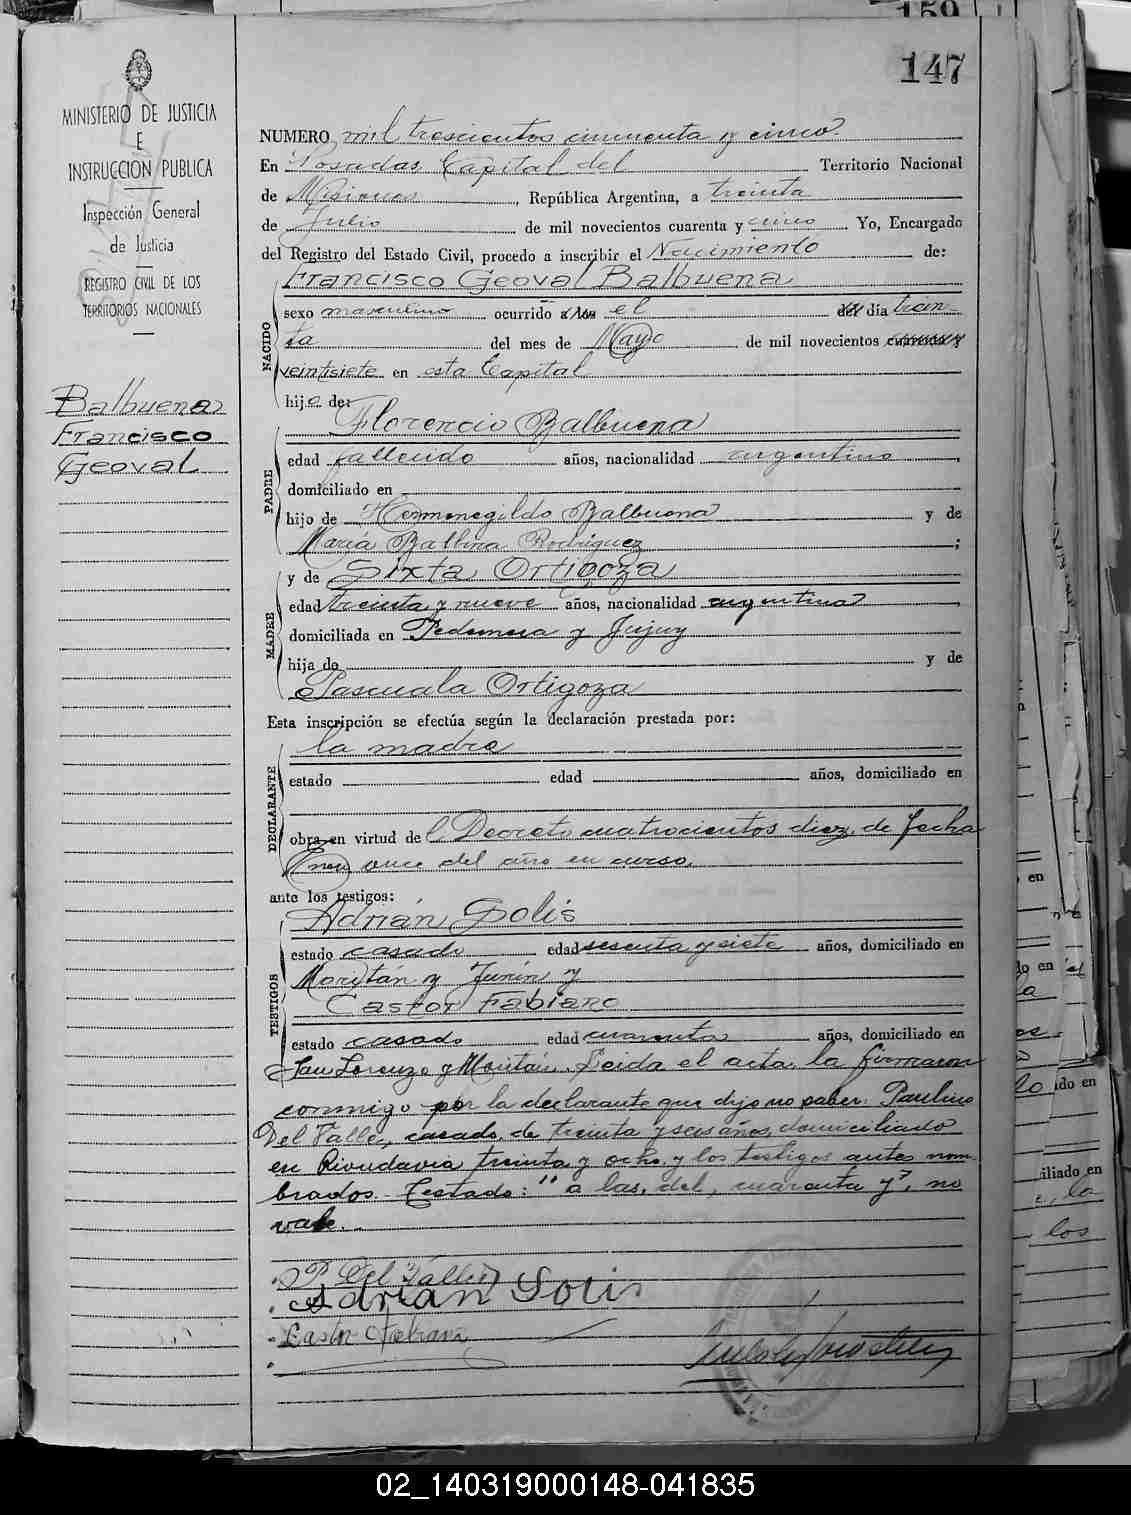 159
147
MINISTERIO DE JUSTICIA
E
INSTRUCCION PUBLICA
Inspección General
de Justicia
REGISTRO CIVIL DE LOS
TERRITORIOS NACIONALES
Balbuena
Francisco
Geoval
NUMERO mil trescientos cincuenta y cinco
En Posadas Capital del Territorio Nacional
de Misiones, República Argentina, a treinta
de Julio de mil novecientos cuarenta y cinco Yo, Encargado
del Registro del Estado Civil, procedo a inscribir el Nacimiento de:
Francisco Geoval Balbuena
NACIDO
sexo masculino ocurrido a las el del día trein-
ta del mes de Mayo de mil novecientos cuarenta y
veintisiete en esta Capital
hijo de:
Florencio Balbuena
PADRE
edad fallecido años, nacionalidad argentino,
domiciliado en
hijo de Hermenegildo Balbuena y de
María Balbina Rodriguez;
y de Sixta Ortigoza
MADRE
edad treinta y nueve años, nacionalidad argentina,
domiciliada en Pedernera y Jujuy
hija de y de
Pascuala Ortigoza
Esta inscripción se efectúa según la declaración prestada por:
la madre
DECLARANTE
estado edad años, domiciliado en
obra en virtud del Decreto cuatrocientos diez de fecha
Enero once del año en curso,
ante los testigos:
Adrián Solis
TESTIGOS
estado casado edad sesenta y siete años, domiciliado en
Moritán y Junín y
Castor Fabiano
estado casado edad cuarenta años, domiciliado en
San Lorenzo y Moritán. Leida el acta, la firmaron
conmigo por la declarante que dijo no saber: Paulino
Del Valle, casado, de treinta y seis años, domiciliado
en Rivadavia treinta y ocho y los testigos antes nom-
brados. Testado: "a las, del, cuarenta y", no
vale.
P Del Valle
Adrian Solis
Castor Fabiano
en
do en
la
ido en
lo
iliado en
la
los
02_140319000148-041835